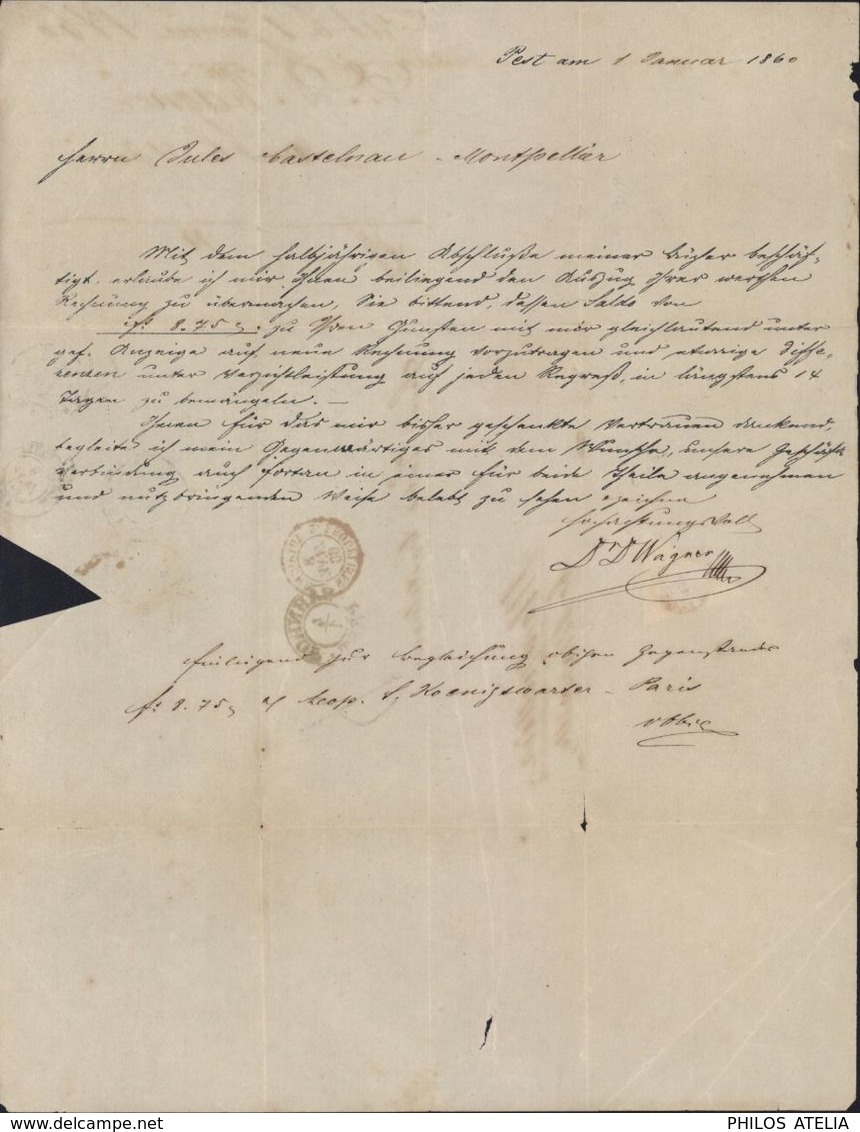 Pest am 1 Januar 1860
Herrn Jules Castelnau - Montpellier
Mit dem halbjährigen Abschluße meiner Bücher beschäf-
tigt, erlaube ich mir Ihnen beiliegend den Auszug Ihrer werthen
Rechnung zu übermachen, Sie bittend, dessen Saldo von
fs 8.75 zu Ihren Gunsten mit mir gleichlautend unter
gef. Anzeige auf neue Rechnung vorzutragen und etwaige Diffe-
renzen unter Verzichtleistung auf jeden Regreß, in längstens 14
Tagen zu bemängeln. —
Ihnen für das mir bisher geschenkte Vertrauen dankend,
begleite ich mein Gegenwärtiges mit dem Wunsche, unsere Geschäfts
verbindung auch fortan in einer für beide Theile angenehmen
und nutzbringenden Weise belebt zu sehen & zeichne
hochachtungsvoll
Dr D Wagner
Einliegend zur Begleichung obigen Gegenstandes
fs 8.75 a/ Leop. Koenigswarter - Paris
PHILOS ATELIA